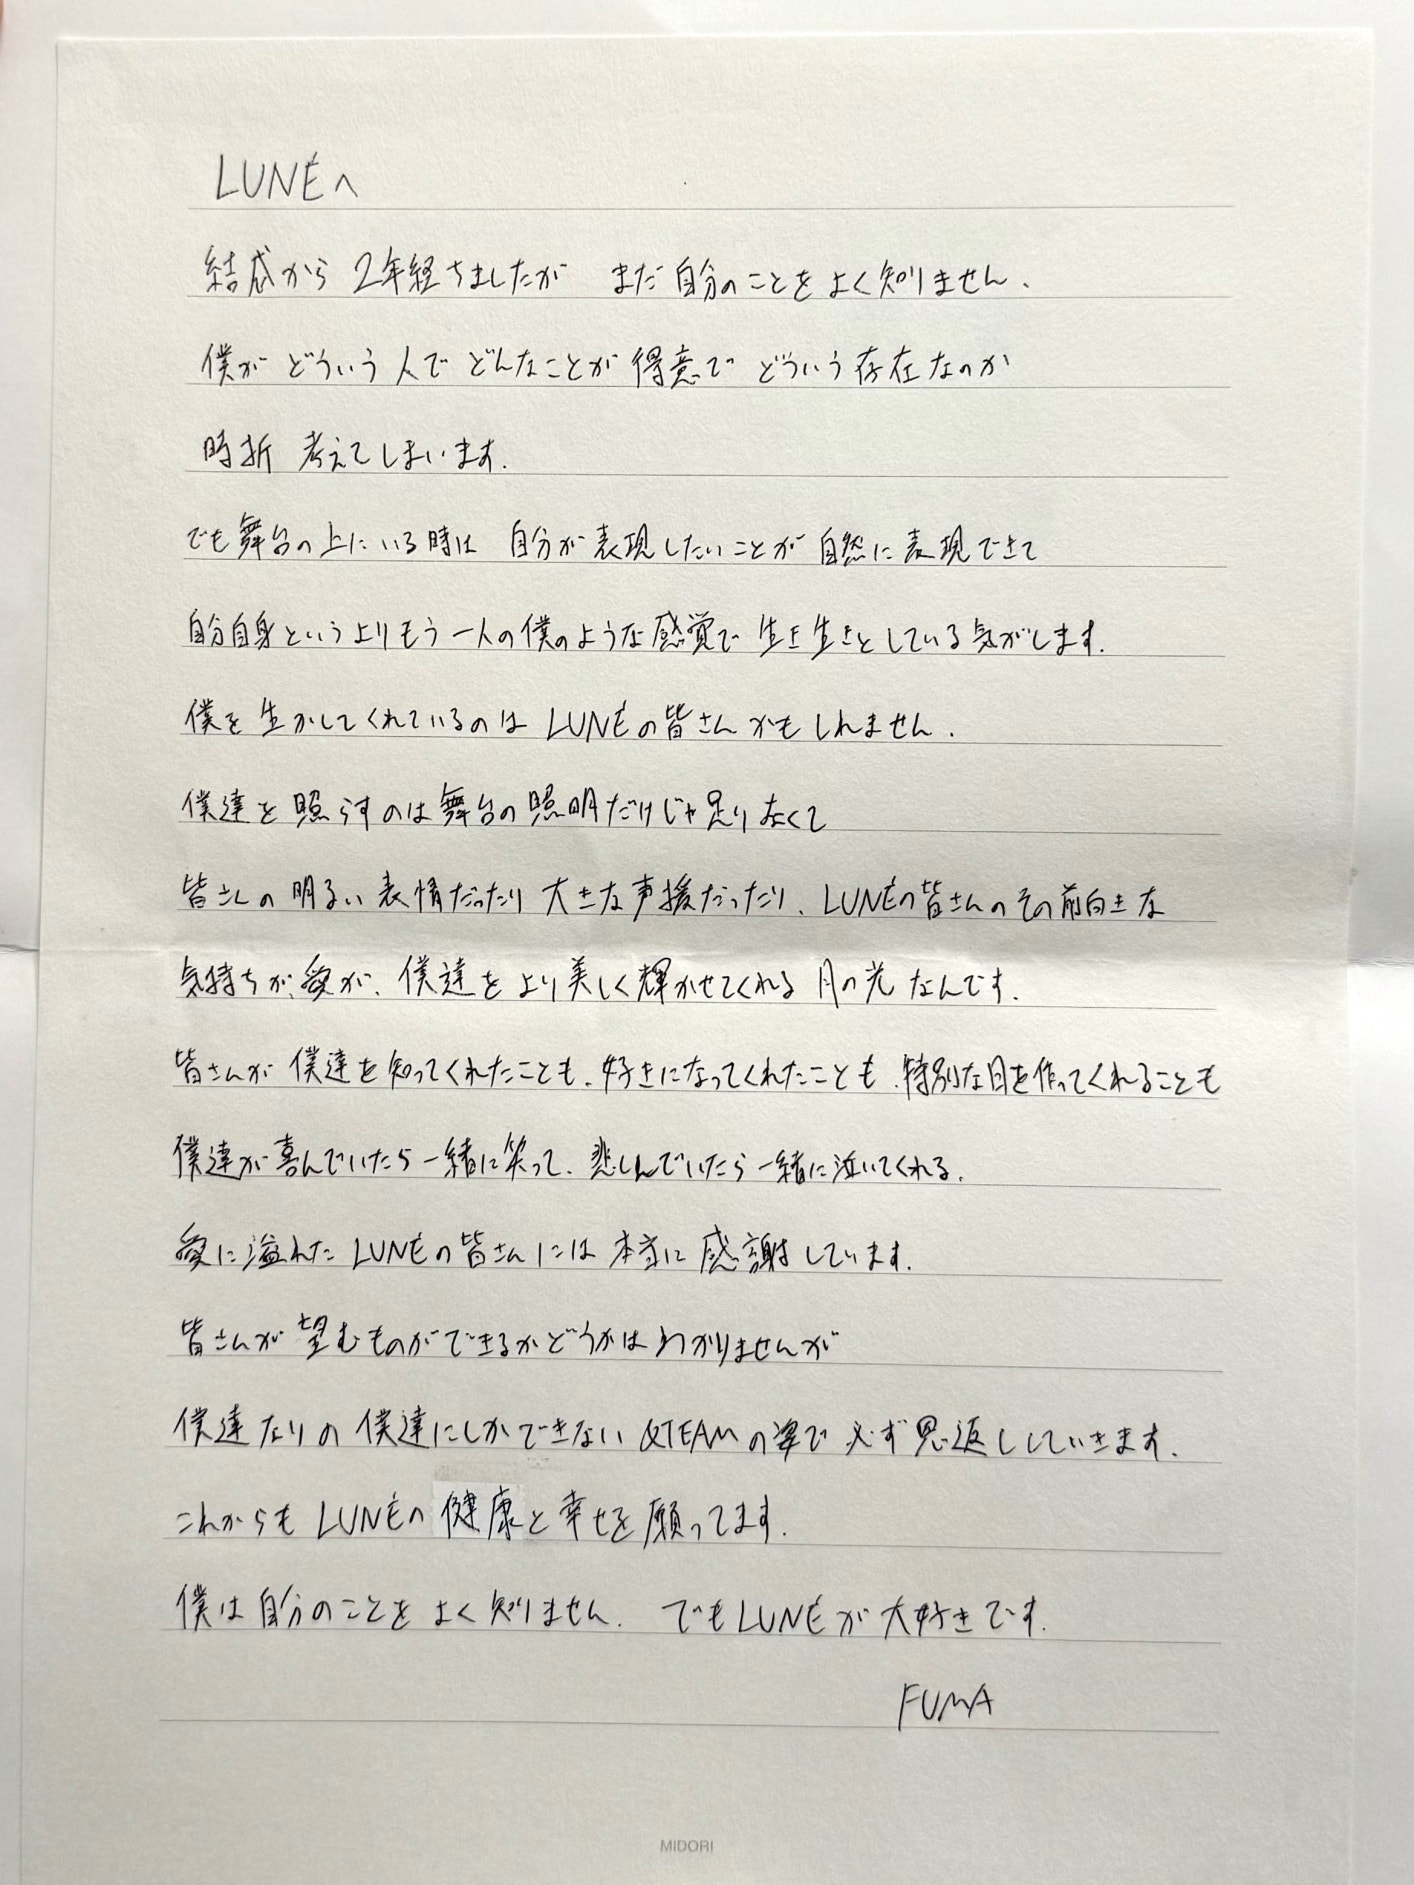 LUNÉへ
結成から 2年経ちましたが まだ自分のことをよく知りません.
僕がどういう人でどんなことが得意でどういう存在なのか
時折 考えてしまいます.
でも舞台の上にいる時は 自分が表現したいことが自然に表現できて
自分自身というよりもう一人の僕のような感覚で生き生きとしている気がします.
僕を生かしてくれているのはLUNÉの皆さんかもしれません.
僕達を照らすのは舞台の照明だけじゃ足りなくて
皆さんの明るい表情だったり大きな声援だったり、LUNÉの皆さんのその前向きな
気持ちが、愛が、僕達をより美しく輝かせてくれる月の光なんです.
皆さんが僕達を知ってくれたことも、好きになってくれたことも、特別な日を作ってくれることも
僕達が喜んでいたら一緒に笑って、悲しんでいたら一緒に泣いてくれる.
愛に溢れたLUNÉの皆さんには本当に感謝しています.
皆さんが望むものができるかどうかはわかりませんが
僕達なりの僕達にしかできない&TEAMの姿で必ず恩返ししていきます.
これからもLUNÉの健康と幸せを願ってます.
僕は自分のことをよく知りません. でもLUNÉが大好きです.
FUMA
MIDORI